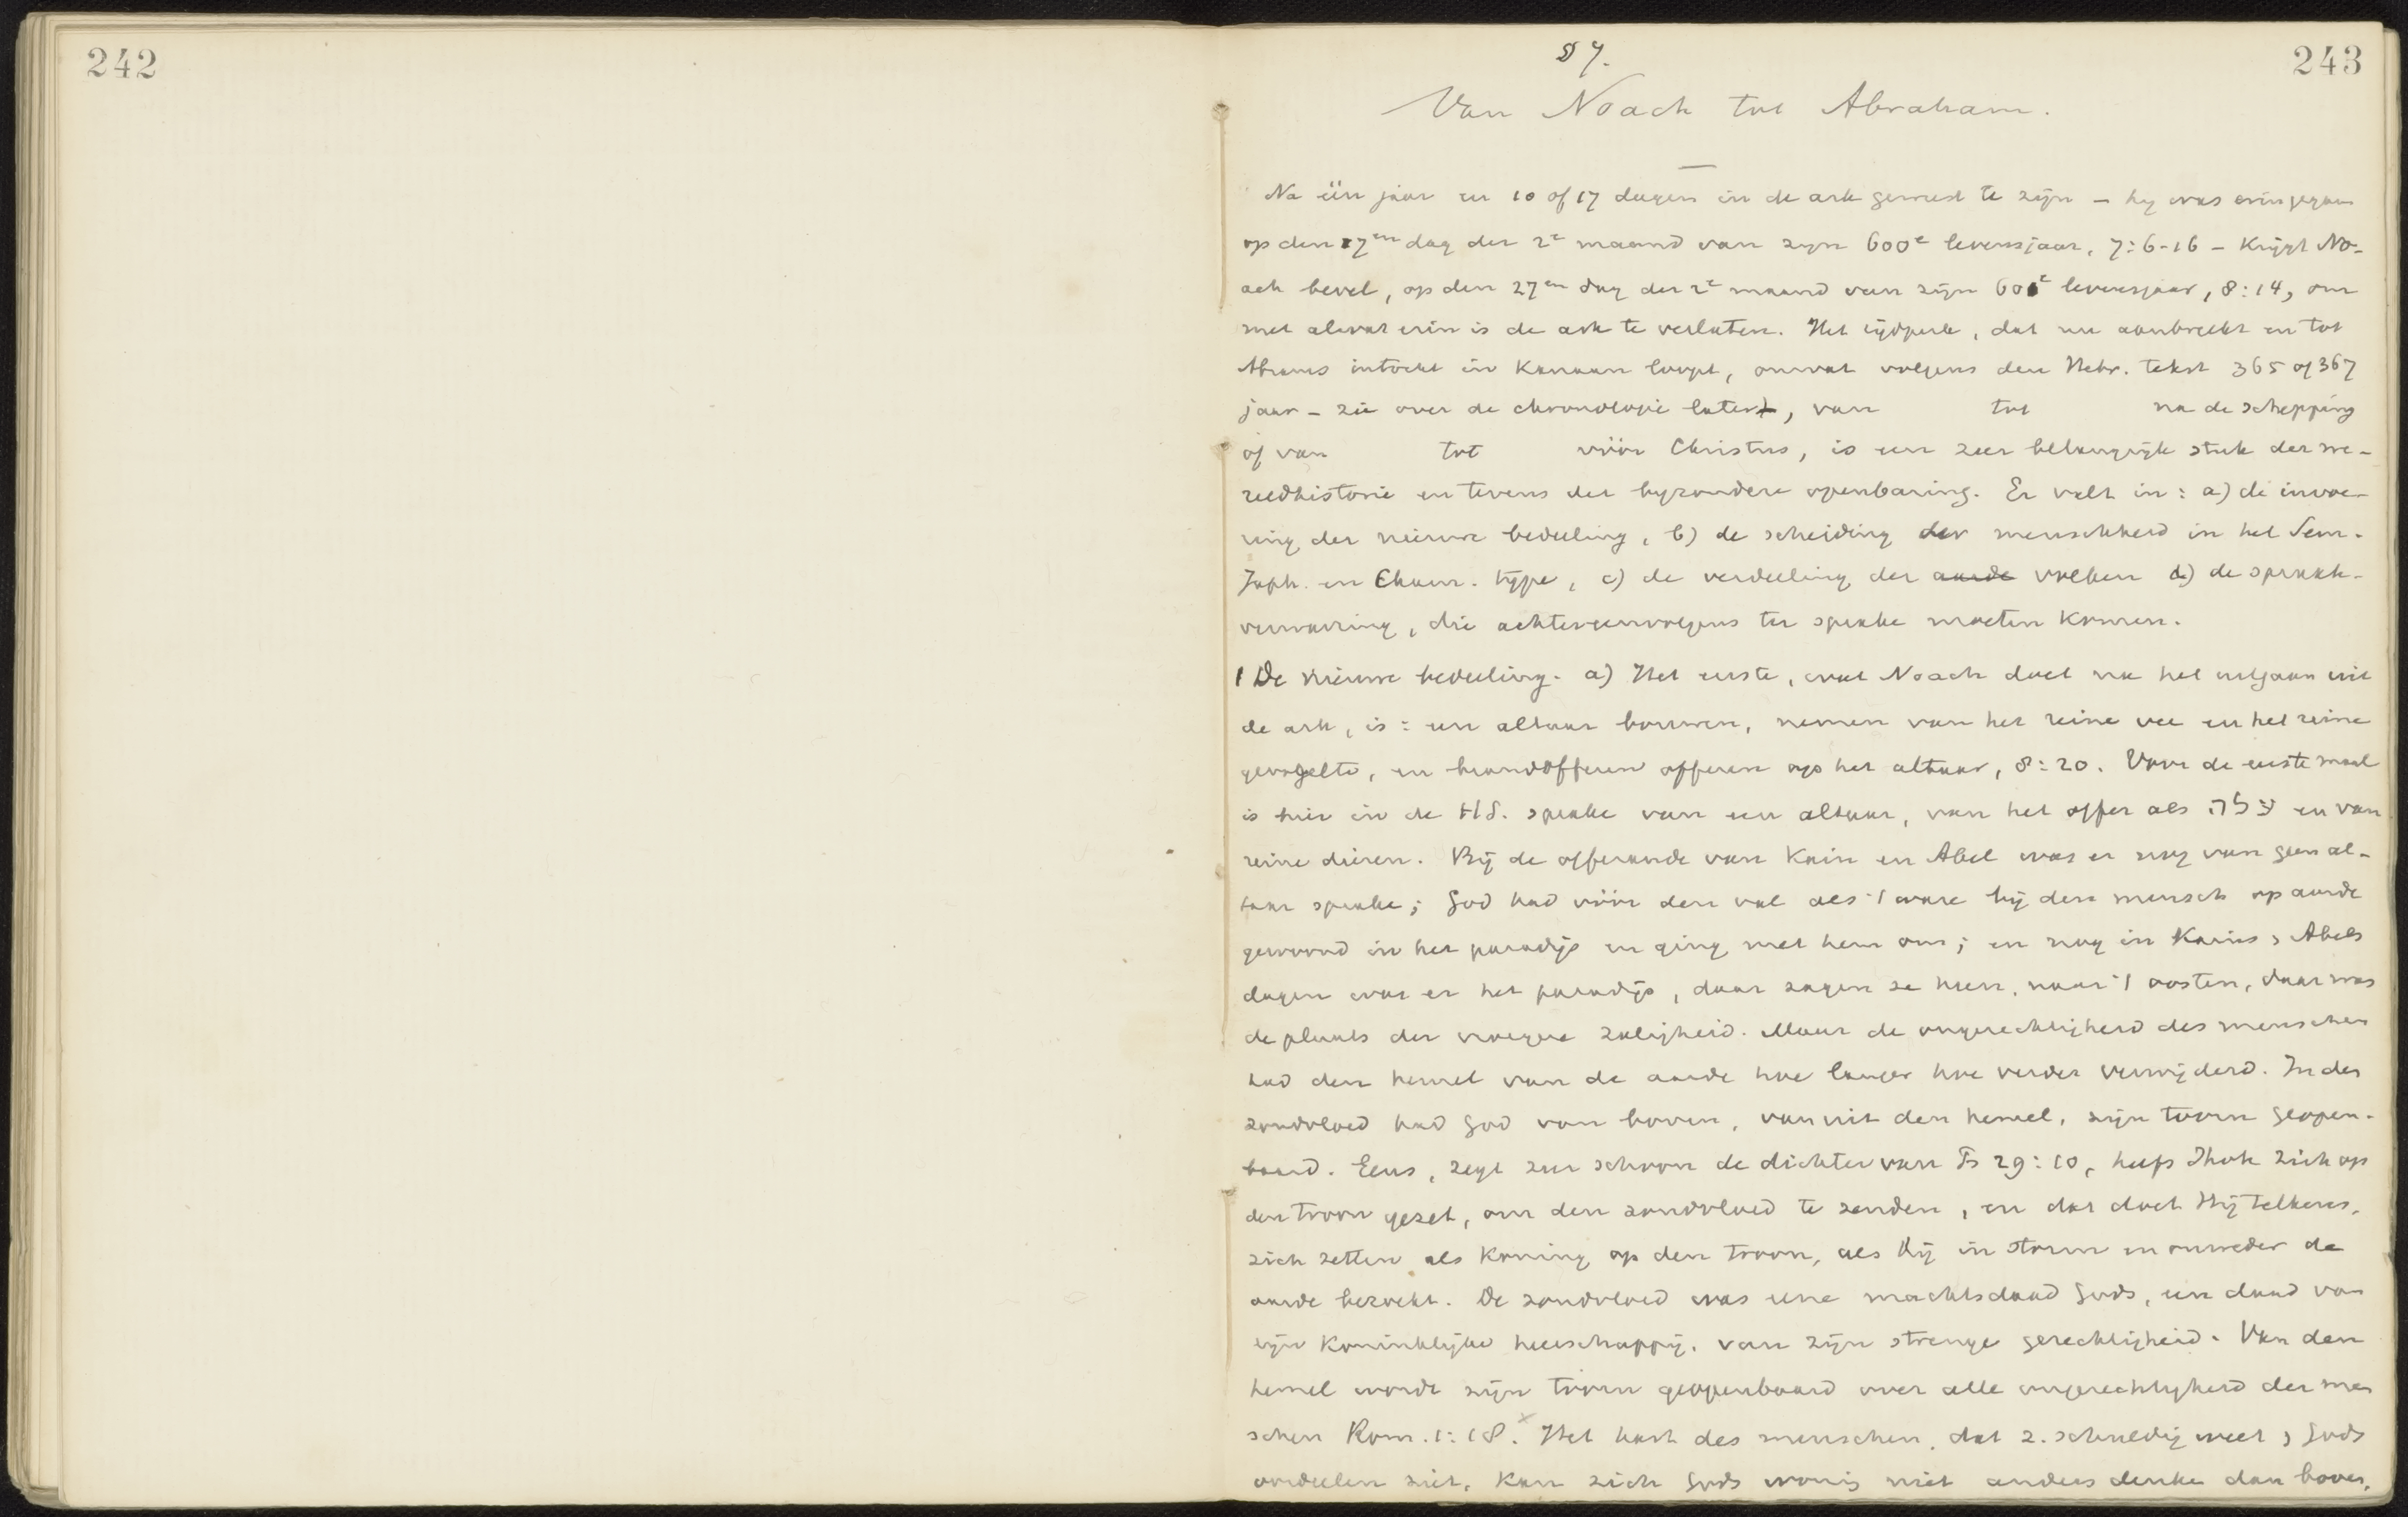 242
243
§ 7.
Van Noach tot Abraham.
Na één jaar en 10 of 17 dagen in de ark geweest te zijn – hij was erin gegaan
op den 17en dag der 2e maand van zijn 600e levensjaar, 7:6-16 – krijgt No-
ach bevel, op den 27en dag der 2e maand van zijn 601e levensjaar, 8:14, om
met alwat erin is de ark te verlaten. Het tijdperk, dat nu aanbreekt en tot
Abrams intocht in Kanaan loopt, omvat volgens den Hebr. tekst 365 of 367
jaar – zie over de chronologie later, van tot na de schepping
of van tot vóór Christus, is een zeer belangrijk stuk der we-
reldhistorie en tevens der byzondere openbaring. Er valt in: a) de invoe-
ring der nieuwe bedeeling, b) de scheiding der menschheid in het Sem.
Japh. en Cham. type, c) de verdeeling der aarde volken d) de spraak-
verwarring, die achtereenvolgens ter sprake moeten komen.
1 De nieuwe bedeeling. a) Het eerste, wat Noach doet na het uitgaan uit
de ark, is: een altaar bouwen, nemen van het reine vee en het reine
gevogelte, en brandofferen offeren op het altaar, 8:20. Voor de eerste maal
is hier in de H.S. sprake van een altaar, van het offer als עלה en van
reine dieren. Bij de offerande van Kain en Abel was er nog van geen al-
taar sprake; God had vóór den val als 't ware bij den mensch op aarde
gewoond in het paradijs en ging met hem om; en nog in Kains, Abels
dagen was er het paradijs, daar zagen ze heen, naar 't oosten, daar was
de plaats der vroegere zaligheid. Maar de ongerechtigheid des menschen
had den hemel van de aarde hoe langer hoe verder verwijderd. In den
zondvloed had God van boven, van uit den hemel, zijn toorn geopen-
baard. Eens, zegt zoo schoon de dichter van Ps 29:10, heeft Jhvh zich op
den troon gezet, om den zondvloed te zenden, en dat doet Hij telkens,
zich zetten als Koning op den troon, als Hij in storm en onweder de
aarde bezoekt. De zondvloed was eene machtsdaad Gods, een daad van
zijn Koninklijke heerschappij, van zijn strenge gerechtigheid. Van den
hemel wordt zijn toorn geopenbaard over alle ongerechtigheid der men
schen Rom. 1:18. x Het hart des menschen, dat z. schuldig weet, Gods
oordeelen ziet, kan zich Gods woning niet anders denken dan boven,